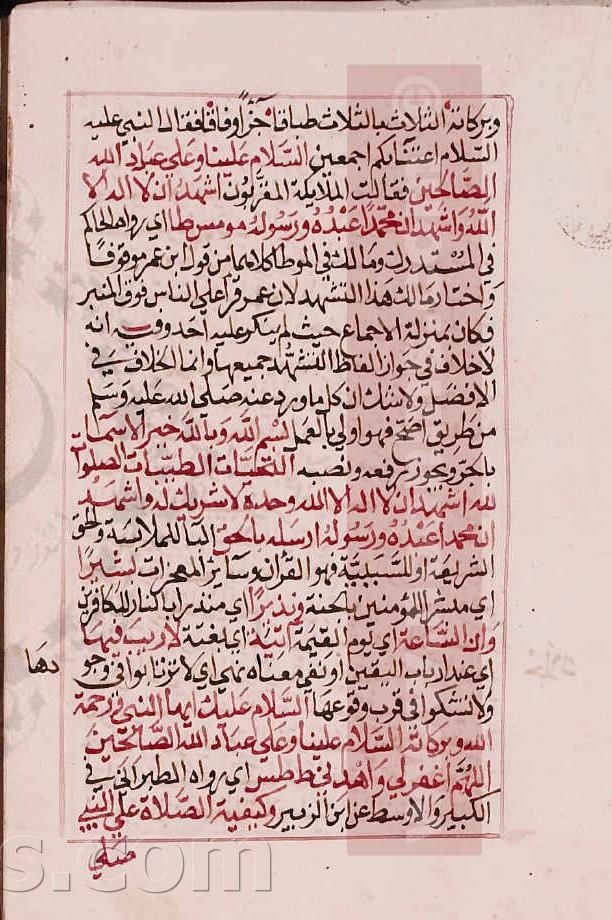 وبركاته الثلاث بالثلاث طباقا جزاء وفاقا فقال النبي عليه
السلام اعتناء بكم اجمعين السلام علينا وعلى عباد الله
الصالحين فقالت الملايكة المقربون اشهد ان لا اله الا
الله واشهد ان محمدا عبده ورسوله مو مس طا اي رواه الحاكم
في المستدرك ومالك في الموطا كلاهما من قول ابن عمر موقوفا
واختار مالك هذا التشهد لان عمر قرا على الناس فوق المنبر
فكان بمنزلة الاجماع حيث لم ينكر عليه احد وفيه انه
لا خلاف في جواز الفاظ التشهد جميعها وانما الخلاف في
الافضل ولا شك ان كل ما ورد عنه صلى الله عليه وسلم
من طريق اصح فهو اولى بالعمل بسم الله وبالله خير الاسماء
بالجر ويجوز رفعه ونصبه التحيات الطيبات الصلوات
لله اشهد ان لا اله الا الله وحده لا شريك له واشهد
ان محمدا عبده ورسوله ارسله بالحق البا للملابسة والحق
الشريعة او للسببية فهو القران وساير المعجزات بشيرا
اي مبشر المؤمنين بالجنة ونذيرا اي منذرا بالنار للكافرين
وان الساعة اي يوم القيمة اتية اي بغتة لا ريب فيها
اي عند ارباب اليقين او نفي معناه نهي اي لا ترتابوا في وجو
دها
ولا تشكوا في قرب وقوعها السلام عليك ايها النبي ورحمة
الله وبركاته السلام علينا وعلى عباد الله الصالحين
اللهم اغفر لي واهدني ط طس اي رواه الطبراني في
الكبير والاوسط عن ابن الزبير وكيفية الصلاة على النبي
صلى
s.com